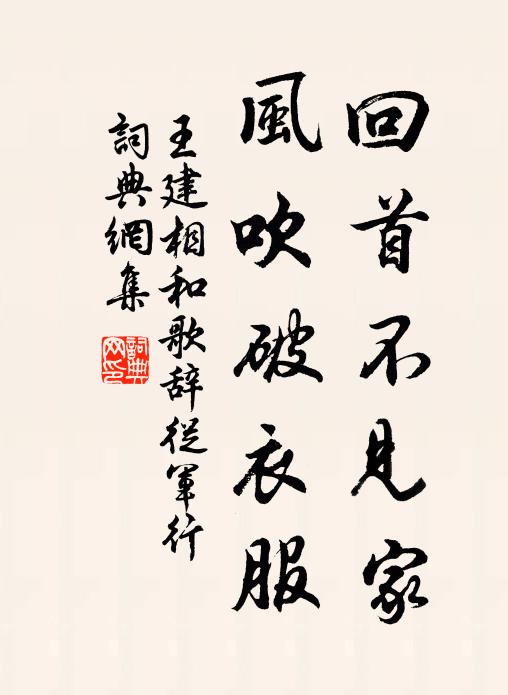 回首不見家
風吹破衣服
王建相和歌辞從軍行
詞典網集
詞典網印